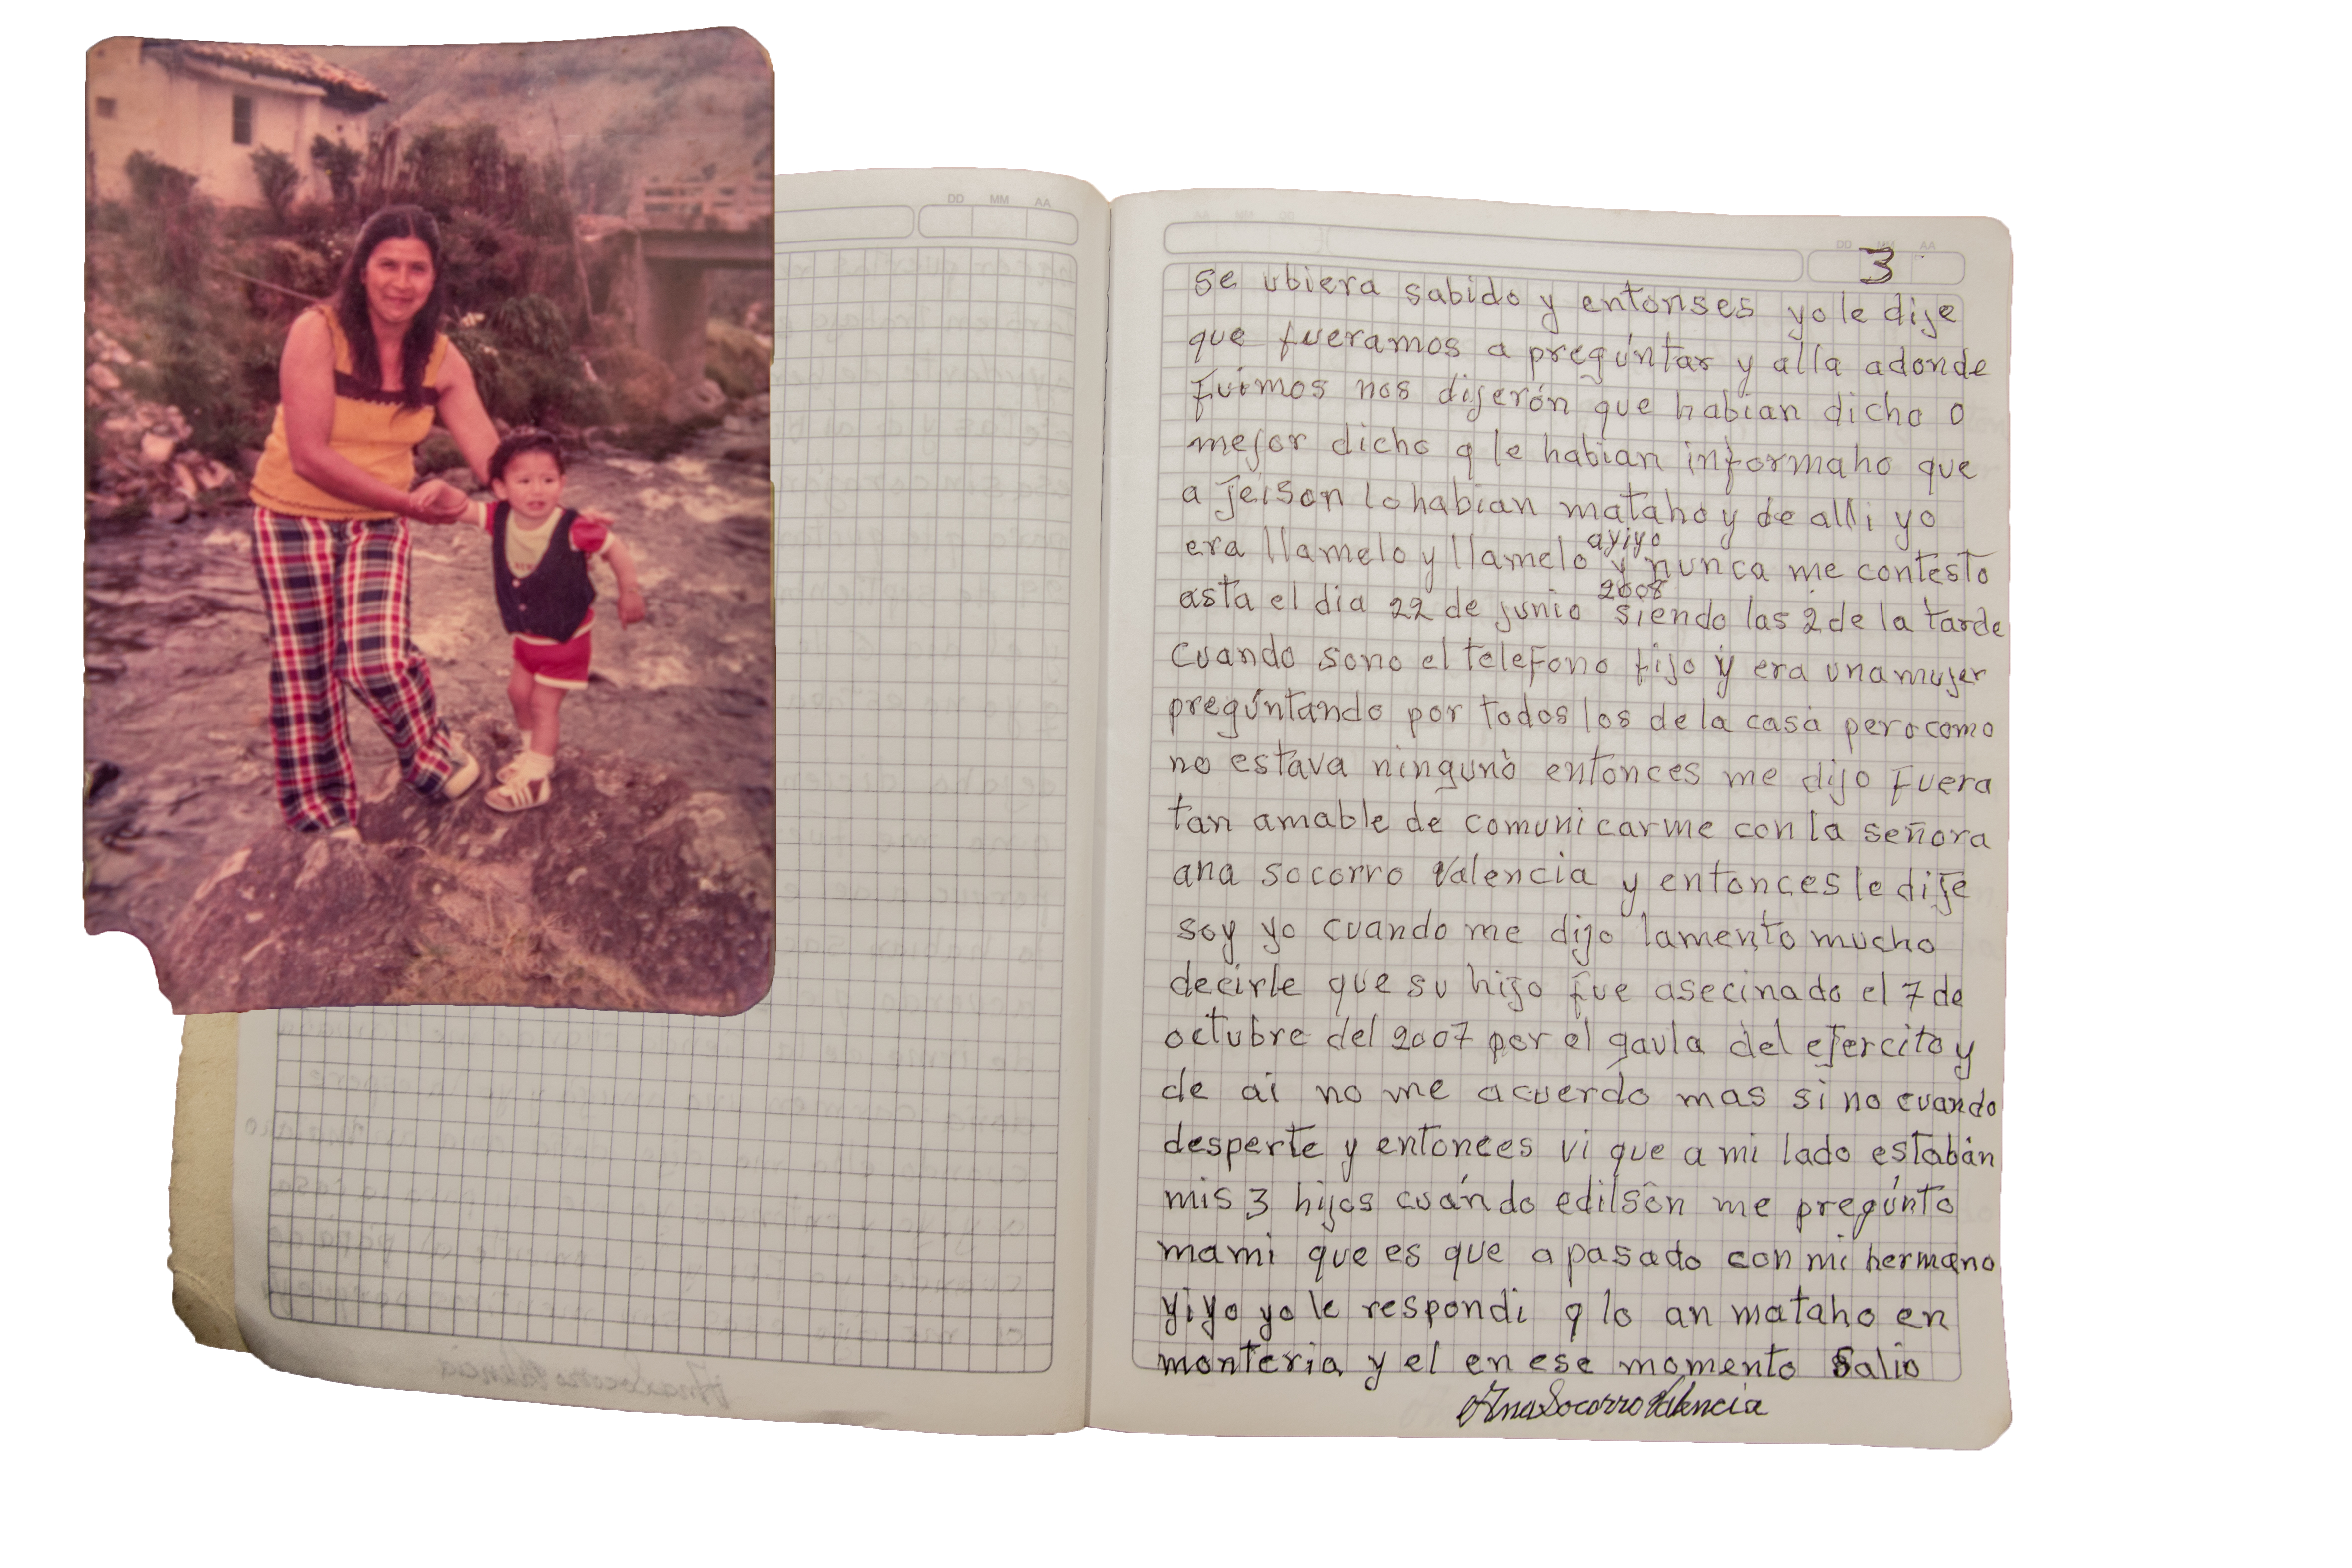 DD MM AA
DD MM AA
3
se ubiera sabido y entonses yo le dije
que fueramos a pregúntar y alla adonde
fuimos nos dijerón que habian dicho o
mejor dicho q le habian informaho que
a jeison lo habian mataho y de alli yo
ayiyo
era llamelo y llamelo y nunca me contesto
2008
asta el dia 22 de junio siendo las 2 de la tarde
cuando sono el telefono fijo y era una mujer
pregúntando por todos los de la casa pero como
no estava ninguno entonces me dijo fuera
tan amable de comunicarme con la señora
ana socorro Valencia y entonces le dije
soy yo cuando me dijo lamento mucho
decirle que su hijo fue asecinado el 7 de
octubre del 2007 por el gaula del ejercito y
de ai no me acuerdo mas si no cuando
desperte y entonces vi que a mi lado estabán
mis 3 hijos cuándo edilsón me pregúnto
mami que es que a pasado con mi hermano
yiyo yo le respondi q lo an mataho en
monteria y el en ese momento salio
Ana Socorro Valencia